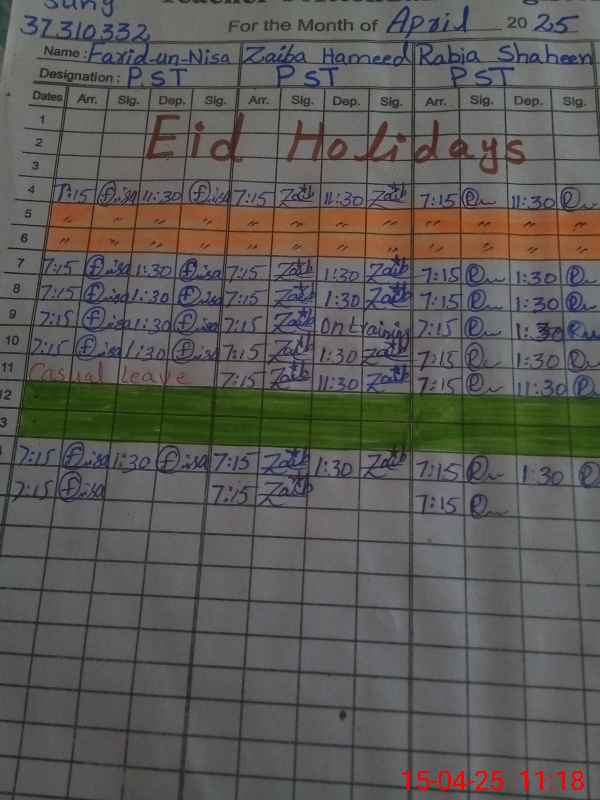 37310332 For the Month of April 2025
Name: Farid-un-Nisa Zaiba Hameed Rabia Shaheen
Designation: PST PST PST
Dates Arr. Sig. Dep. Sig. Arr. Sig. Dep. Sig. Arr. Sig. Dep. Sig.
1
2 Eid Holidays
3
4 7:15 f.nisa 11:30 f.nisa 7:15 Zaib 11:30 Zaib 7:15 11:30
5 " " " " " " " " " " " "
6 " " " " " " " " " " " "
7 7:15 f.nisa 1:30 f.nisa 7:15 Zaib 1:30 Zaib 7:15 1:30
8 7:15 f.nisa 1:30 f.nisa 7:15 Zaib 1:30 Zaib 7:15 1:30
9 7:15 f.nisa 1:30 f.nisa 7:15 Zaib On training 7:15 1:30
10 7:15 f.nisa 1:30 f.nisa 7:15 Zaib 1:30 Zaib 7:15 1:30
11 Casual Leave 7:15 Zaib 11:30 Zaib 7:15 11:30
12
3
7:15 f.nisa 1:30 f.nisa 7:15 Zaib 1:30 Zaib 7:15 1:30
7:15 f.nisa 7:15 Zaib 7:15
15-04-25 11:18